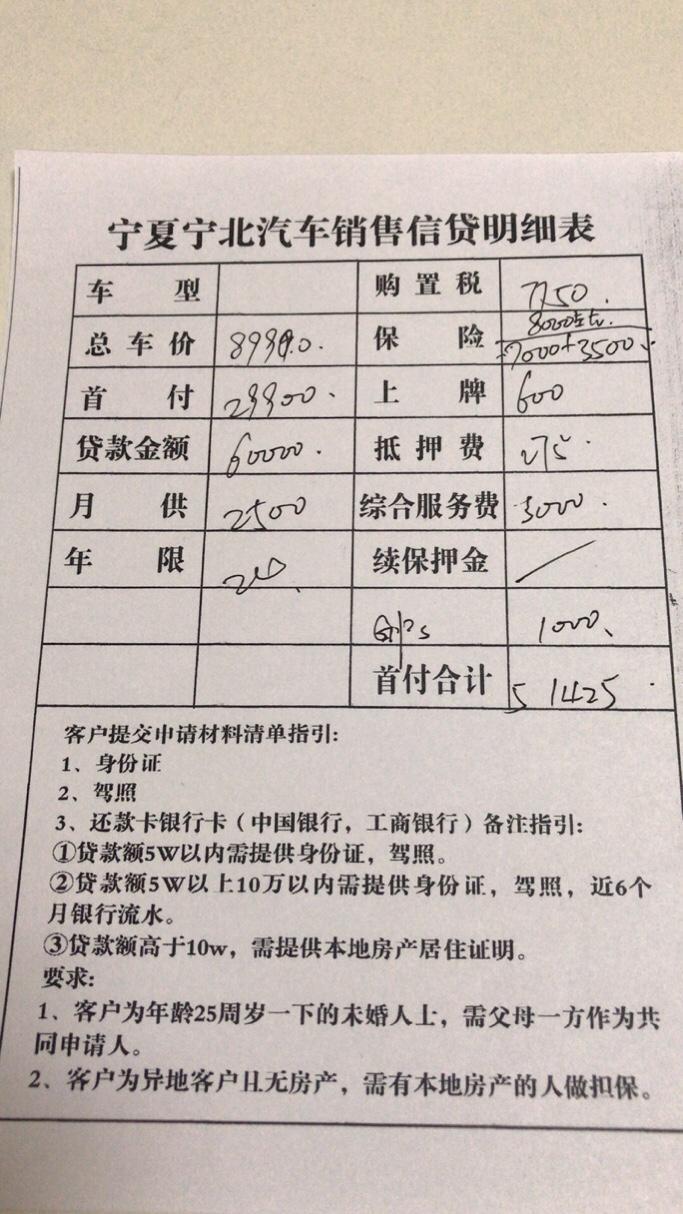 宁夏宁北汽车销售信贷明细表
车 型 购 置 税 7750.
总 车 价 89900. 保 险 8000左右. 7000+3500.
首 付 29900. 上 牌 600
贷款金额 60000. 抵 押 费 275.
月 供 2500 综合服务费 3000.
年 限 续保押金
GPS 1000、
首付合计 51425.
客户提交申请材料清单指引:
1、身份证
2、驾照
3、还款卡银行卡（中国银行，工商银行）备注指引:
①贷款额5W以内需提供身份证，驾照。
②贷款额5W以上10万以内需提供身份证，驾照，近6个
月银行流水。
③贷款额高于10w，需提供本地房产居住证明。
要求:
1、客户为年龄25周岁一下的未婚人上，需父母一方作为共
同申请人。
2、客户为异地客户且无房产，需有本地房产的人做担保。